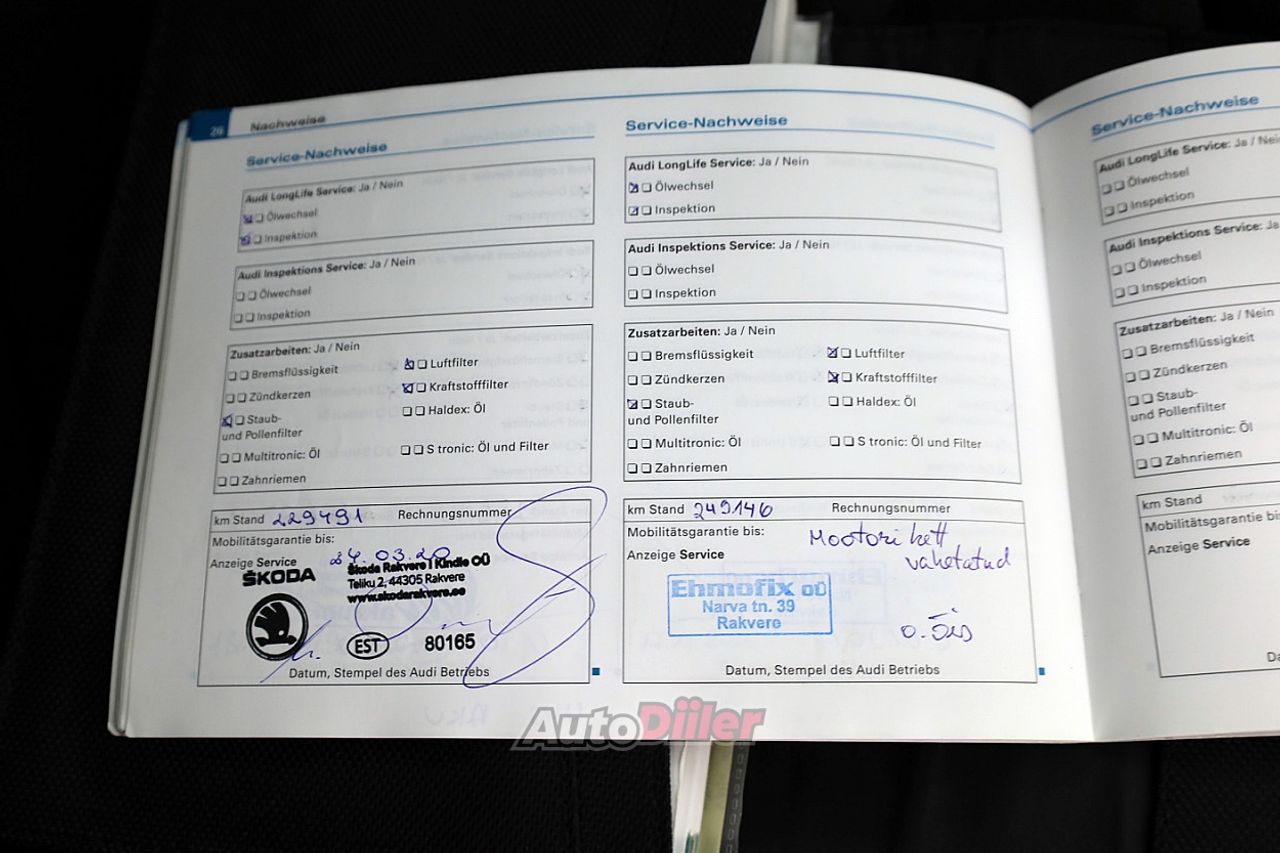 26
Nachweise
Service-Nachweise
Audi LongLife Service: Ja / Nein
Ölwechsel
Inspektion
Audi Inspektions Service: Ja / Nein
Ölwechsel
Inspektion
Zusatzarbeiten: Ja / Nein
Bremsflüssigkeit
Luftfilter
Zündkerzen
Kraftstofffilter
Staub-
und Pollenfilter
Haldex: Öl
Multitronic: Öl
S tronic: Öl und Filter
Zahnriemen
km Stand 229491 Rechnungsnummer
Mobilitätsgarantie bis:
Anzeige Service
24.03.20
ŠKODA
Škoda Rakvere I Kindle OÜ
Teliku 2, 44305 Rakvere
www.skodarakvere.ee
EST
80165
Datum, Stempel des Audi Betriebs
Service-Nachweise
Audi LongLife Service: Ja / Nein
Ölwechsel
Inspektion
Audi Inspektions Service: Ja / Nein
Ölwechsel
Inspektion
Zusatzarbeiten: Ja / Nein
Bremsflüssigkeit
Luftfilter
Zündkerzen
Kraftstofffilter
Staub-
und Pollenfilter
Haldex: Öl
Multitronic: Öl
S tronic: Öl und Filter
Zahnriemen
km Stand 249146 Rechnungsnummer
Mobilitätsgarantie bis:
Mootori kett
vahetatud
Anzeige Service
Ehmofix OÜ
Narva tn. 39
Rakvere
Datum, Stempel des Audi Betriebs
Service-Nachweise
Audi LongLife Service: Ja / Nein
Ölwechsel
Inspektion
Audi Inspektions Service: Ja
Ölwechsel
Inspektion
Zusatzarbeiten: Ja / Nein
Bremsflüssigkeit
Zündkerzen
Staub-
und Pollenfilter
Multitronic: Öl
Zahnriemen
km Stand
Mobilitätsgarantie bis:
Anzeige Service
AutoDiiler